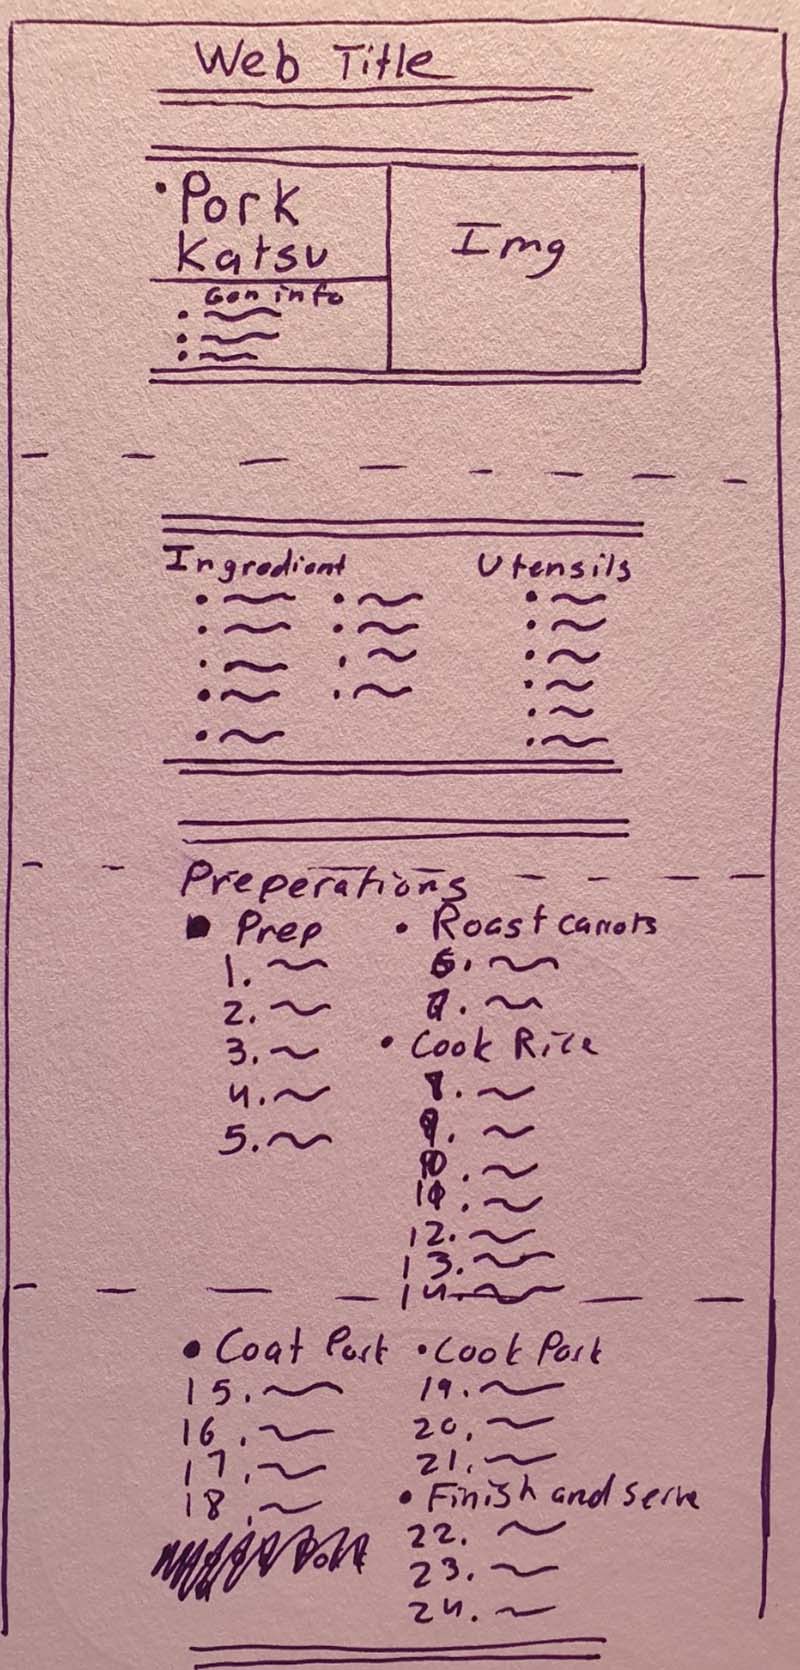 Web Title
• Pork
Katsu
Img
Gen info
Ingredient
Utensils
Preperations
Prep
1.
2.
3.
4.
5.
• Roast carrots
6.
7.
• Cook Rice
8.
9.
10.
11.
12.
13.
14.
• Coat Pork
15.
16.
17.
18.
• Cook Pork
19.
20.
21.
• Finish and serve
22.
23.
24.